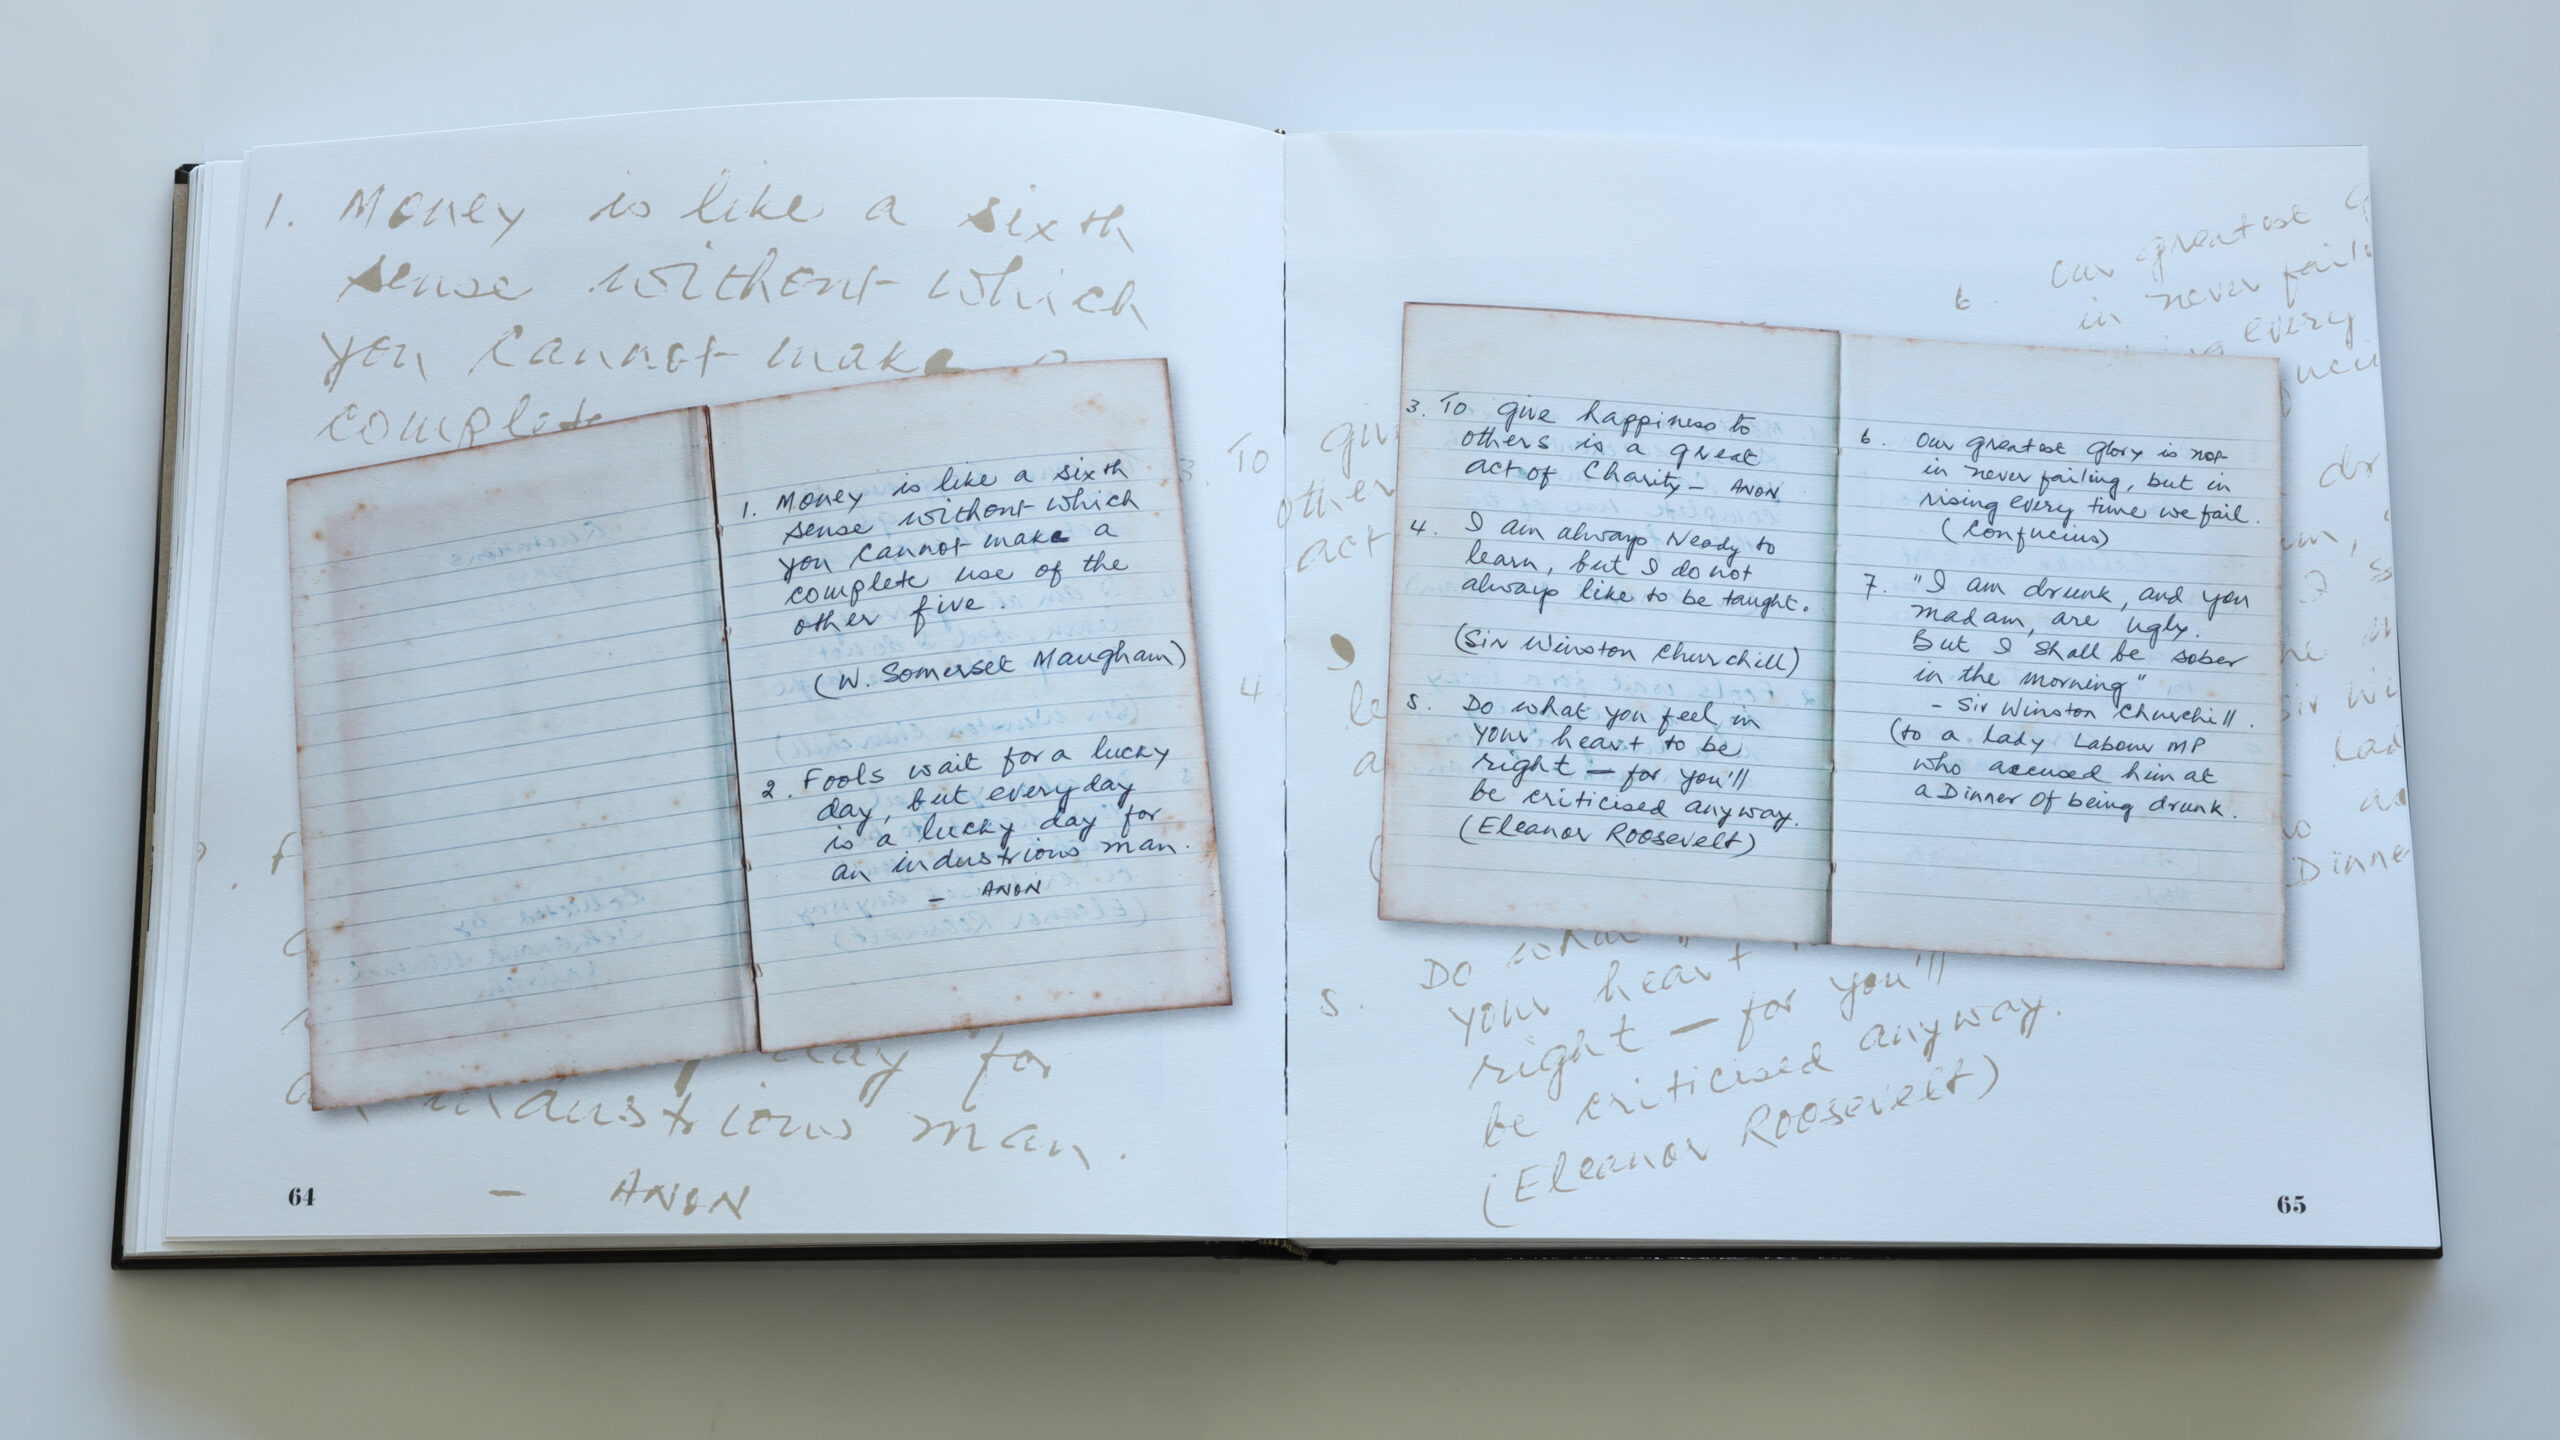 1. Money is like a sixth
sense without which
you cannot make a
complete
for
an industrious man.
- ANON
64
1. Money is like a sixth
sense without which
you cannot make a
complete use of the
other five.
(W. Somerset Maugham)
2. Fools wait for a lucky
day, but everyday
is a lucky day for
an industrious man.
- ANON
3. To
other
act
4.
5. Do what
your heart
right — for you'll
be criticised anyway.
(Eleanor Roosevelt)
3. To give happiness to
others is a great
act of Charity - ANON
4. I am always ready to
learn, but I do not
always like to be taught.
(Sir Winston Churchill)
5. Do what you feel in
your heart to be
right — for you'll
be criticised anyway.
(Eleanor Roosevelt)
6. Our greatest glory is not
in never failing, but in
rising every time we fail.
(Confucius)
7. "I am drunk, and you
madam, are ugly.
But I shall be sober
in the morning"
- Sir Winston Churchill.
(to a lady Labour MP
who accused him at
a Dinner of being drunk.
6. Our greatest
in never
every
65